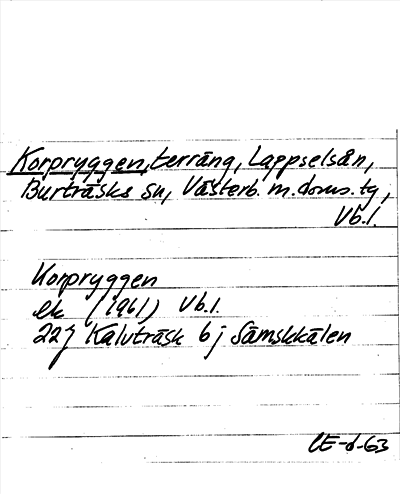 Korpryggen, terräng, Lappselsån,
Burträsks sn, Västerb. m. doms. tg,
Vb.l.
Korpryggen
ek (1961) Vb.l.
22J Kalvträsk 6j Sämskkälen
CE-d-63